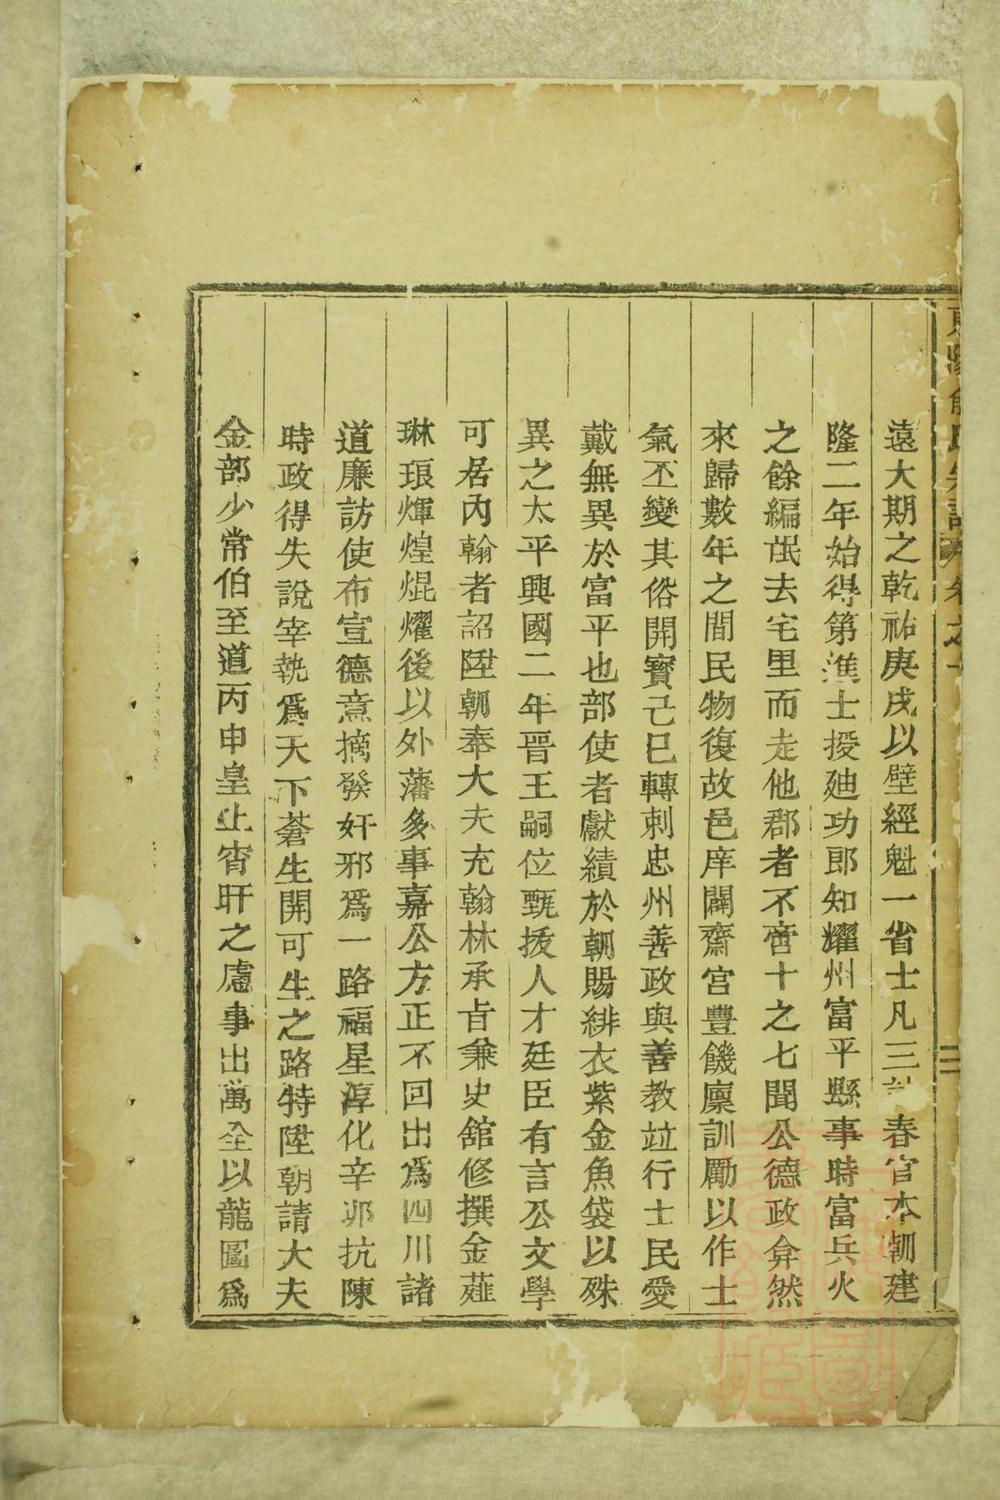 遠大期之乾祐庚戌以壁經魁一省士凡三春官本朝建
隆二年始得第進士授廸功郎知耀州富平縣事時富兵火
之餘編氓去宅里而走他郡者不啻十之七聞公德政弇然
來歸數年之間民物復故邑庠闢齋宫豐餼廩訓勵以作士
氣丕變其俗開寶己巳轉刺忠州善政與善教竝行士民愛
戴無異於富平也部使者獻績於朝賜緋衣紫金魚袋以殊
異之太平興國二年晉王嗣位甄拔人才廷臣有言公文學
可居內翰者詔陞朝奉大夫充翰林承旨兼史舘修撰金薤
琳琅煇煌焜燿後以外藩多事嘉公方正不回出爲四川諸
道廉訪使布宣德意摘發奸邪爲一路福星淳化辛卯抗陳
時政得失說宰執爲天下蒼生開可生之路特陞朝請大夫
金部少常伯至道丙申皇上宵旰之慮事出萬全以龍圖爲